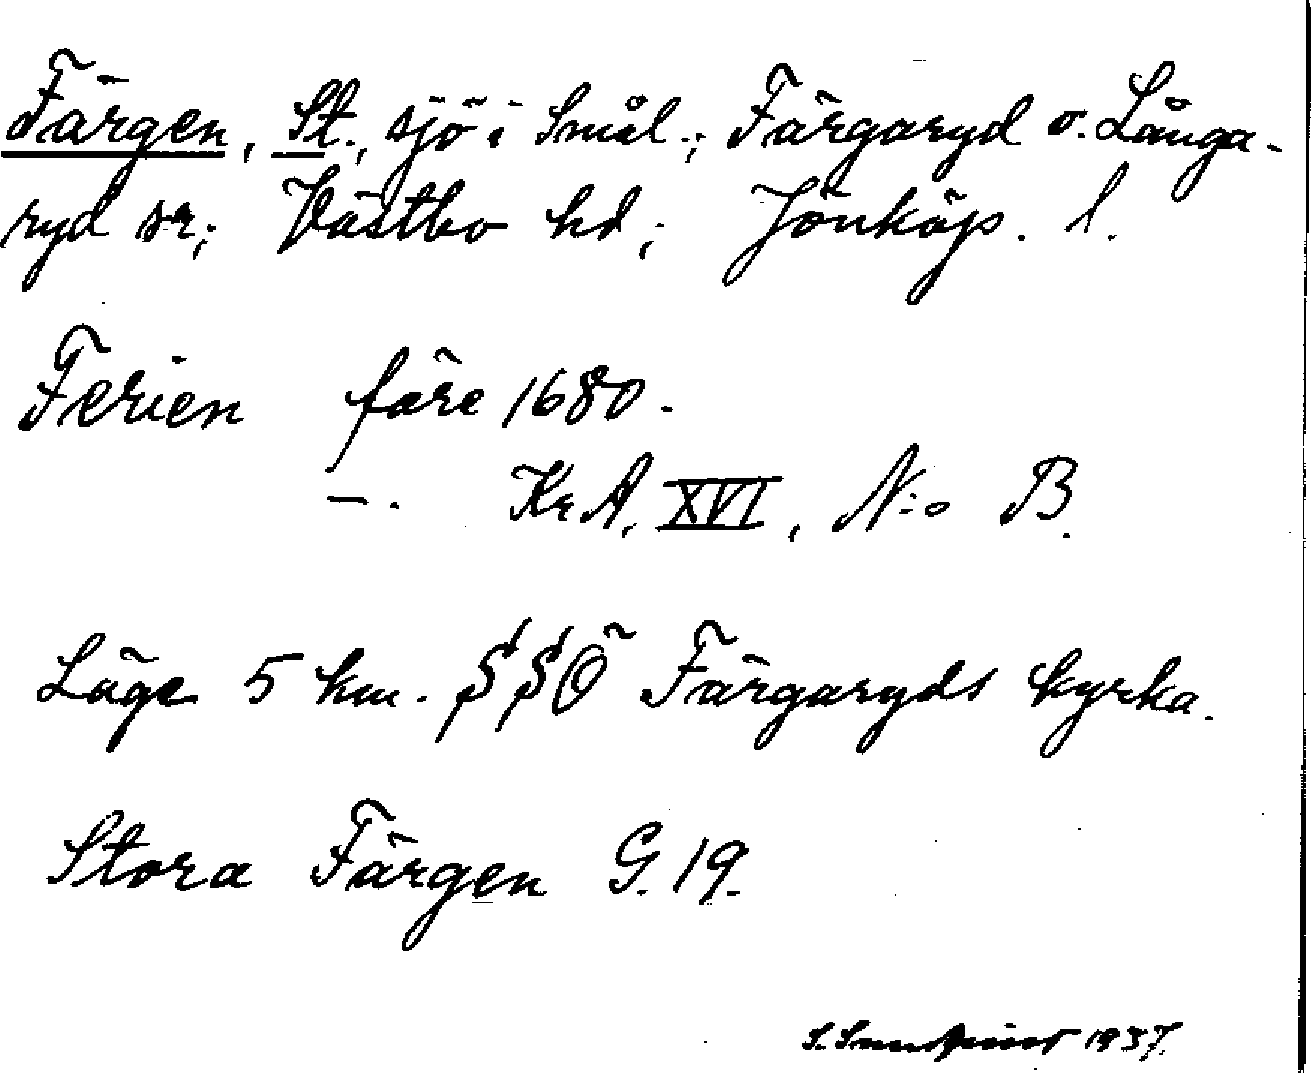 Färgen, St., sjö i Smål.; Färgaryd o. Långa-
ryd sr; Västbo hd; Jönköp. l.
Ferien före 1680.
—. Kr.A. XVI, N:o B.
Läge 5 km. SSÖ Färgaryds kyrka.
Stora Färgen G. 19.
S. 1937.